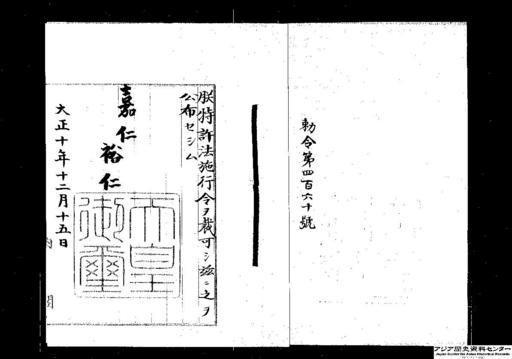 勅令第四百六十號
朕特許法施行令ヲ裁可シ茲ニ之ヲ
公布セシム
嘉仁
裕仁
天皇
御璽
大正十年十二月十五日
内
閣
アジア歴史資料センター
Japan Center for Asian Historical Records